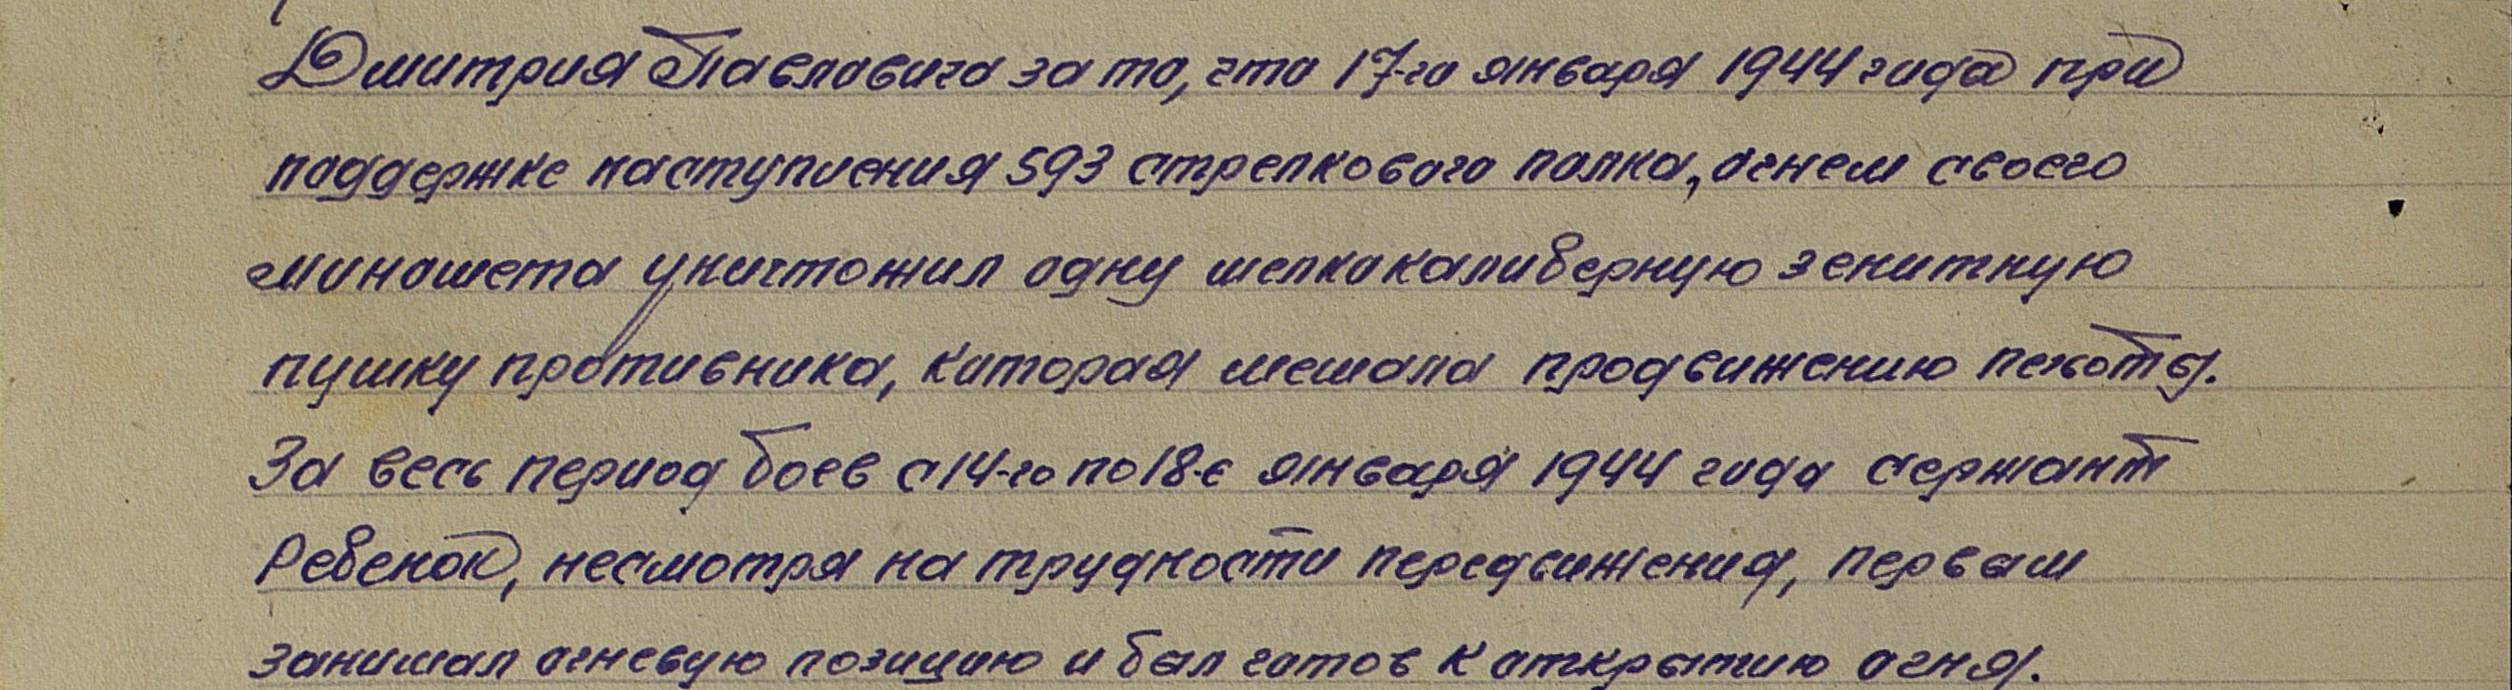 Дмитрия Павловича за то, что 17-го января 1944 года при
поддержке наступления 593 стрелкового полка, огнем своего
миномета уничтожил одну мелкокалиберную зенитную
пушку противника, которая мешала продвижению пехоты.
За весь период боев с 14-го по 18-е января 1944 года сержант
Ребенок, несмотря на трудности передвижения, первым
занимал огневую позицию и был готов к открытию огня.